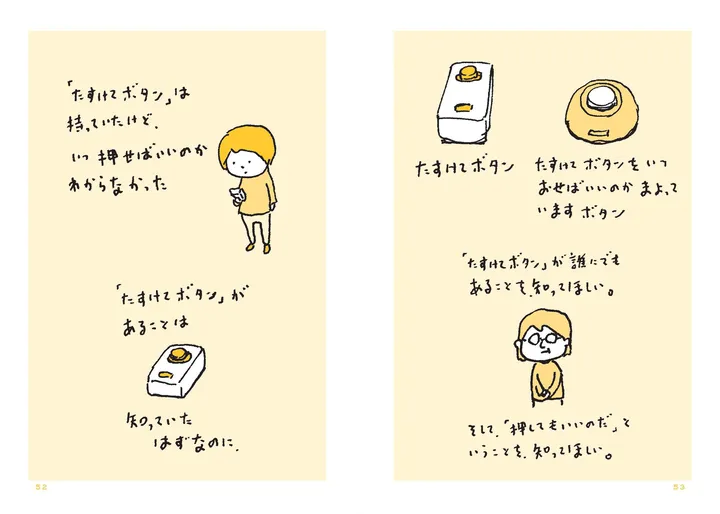 「たすけてボタン」は
持っていたけど、
いつ押せばいいのか
わからなかった
「たすけてボタン」が
あることは
知っていた
はずなのに、
52
たすけてボタン
たすけてボタンをいつ
おせばいいのかまよって
いますボタン
「たすけてボタン」が誰にでも
あることを、知ってほしい。
そして、「押してもいいのだ」と
いうことを、知ってほしい。
53